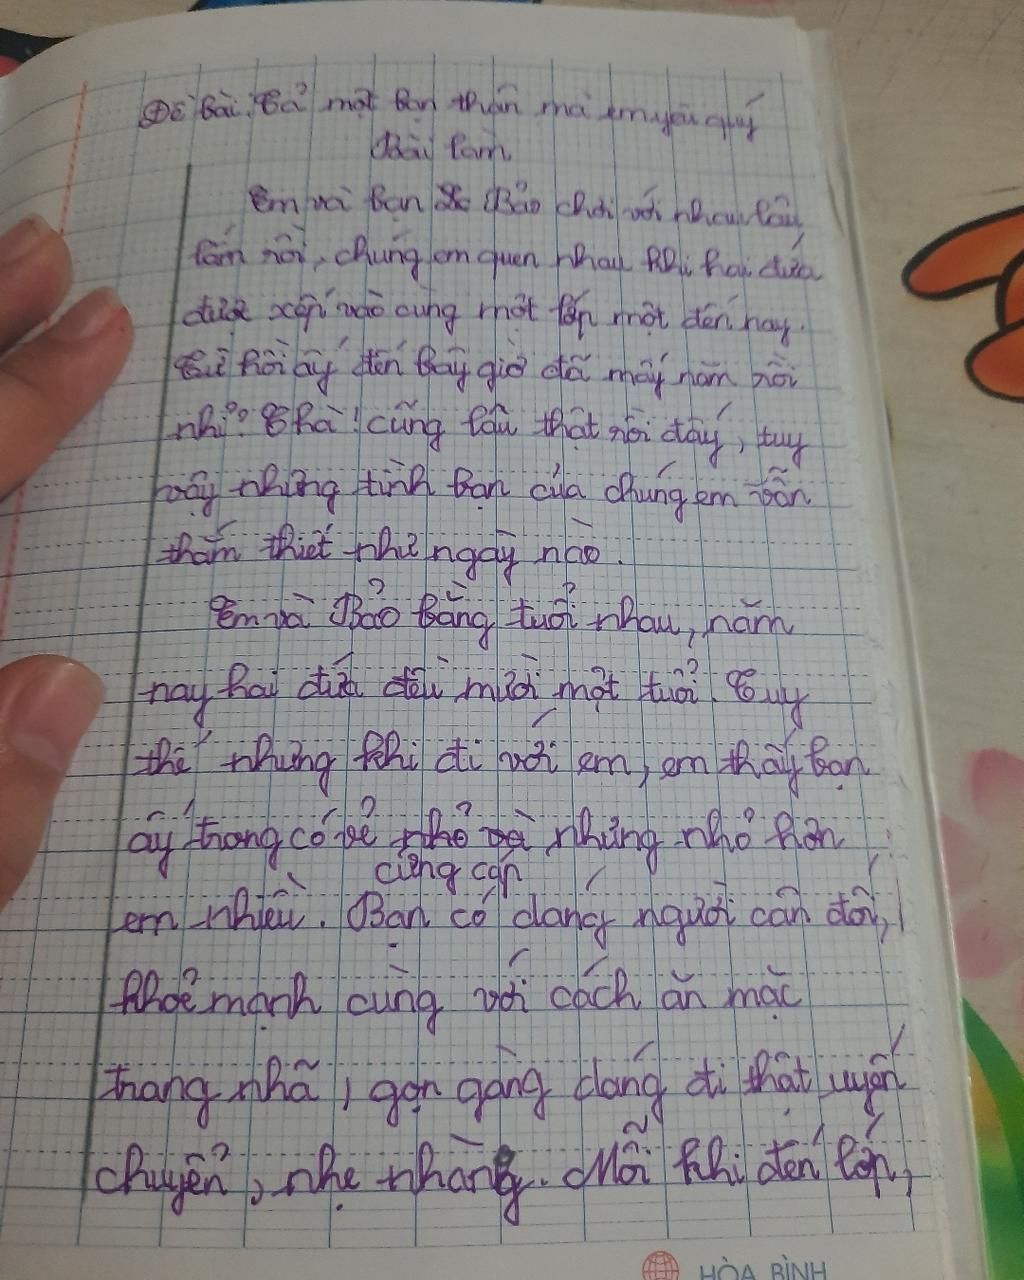 Đề bài: Tả một bạn thân mà em yêu quý
Bài làm
Em và bạn Bảo chơi với nhau lâu
lắm rồi, chúng em quen nhau khi hai đứa
được xếp vào cùng một lớp một đến nay.
Từ hồi ấy đến bây giờ đã mấy năm rồi
nhỉ? Chà! cũng lâu thật rồi đấy, tuy
vậy nhưng tình bạn của chúng em vẫn
thắm thiết như ngày nào.
Em và Bảo bằng tuổi nhau, năm
nay hai đứa đều mười một tuổi. Tuy
thế nhưng khi đi với em, em thấy bạn
ấy trong có vẻ nhỏ và nhưng nhỏ hơn
cứng cáp
em nhiều. Bạn có dáng người cân đối,
khoẻ mạnh cùng với cách ăn mặc
trang nhã, gọn gàng dáng đi thật uyển
chuyển, nhẹ nhàng. Mỗi khi đến lớp,
HÒA BÌNH